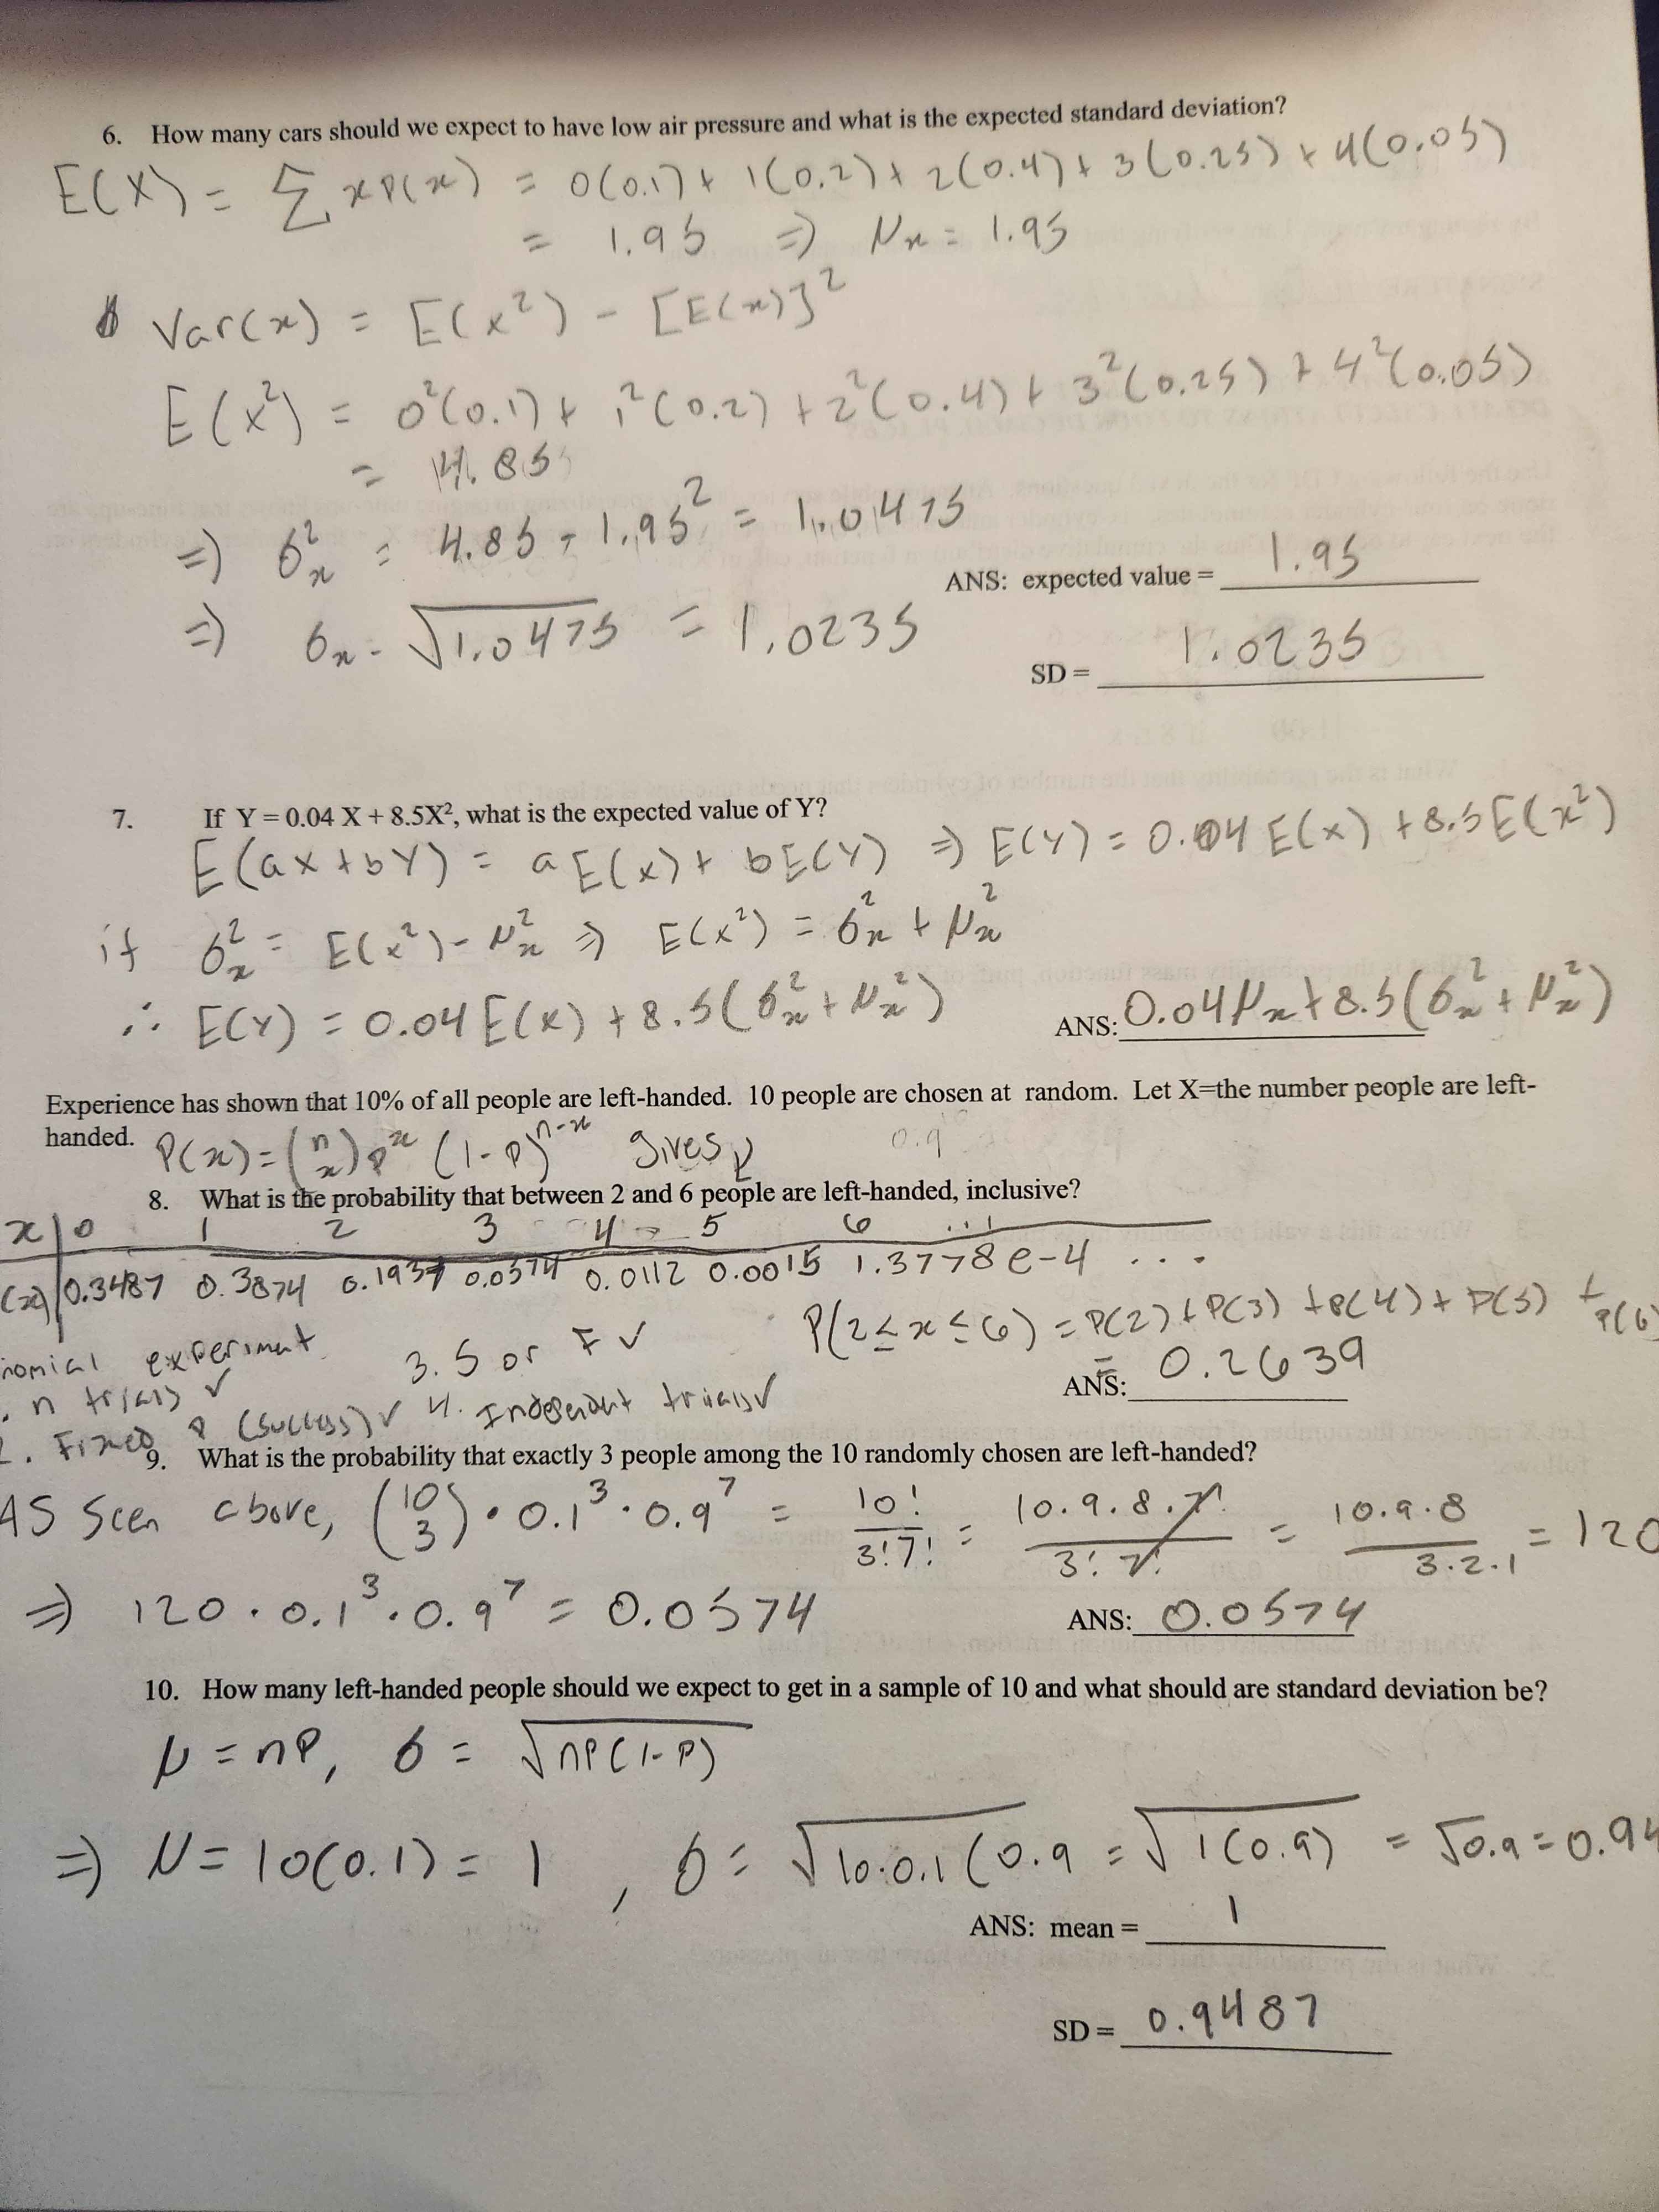 6. How many cars should we expect to have low air pressure and what is the expected standard deviation?
E(X) = Σ xP(x) = 0(0.1) + 1(0.2) + 2(0.4) + 3(0.25) + 4(0.05)
= 1.95 ⇒ μx = 1.95
Var(x) = E(x²) - [E(x)]²
E(x²) = 0²(0.1) + 1²(0.2) + 2²(0.4) + 3²(0.25) + 4²(0.05)
= 4.85
⇒ σ²x = 4.85 - 1.95² = 1.0475
ANS: expected value = 1.95
⇒ σx = √1.0475 = 1.0235
SD = 1.0235
7. If Y = 0.04 X + 8.5X², what is the expected value of Y?
E(aX + bY) = aE(x) + bE(Y) ⇒ E(Y) = 0.04 E(x) + 8.5 E(x²)
if σ²x = E(x²) - μ²x ⇒ E(x²) = σ²x + μ²x
∴ E(Y) = 0.04 E(x) + 8.5(σ²x + μ²x)
ANS: 0.04μx + 8.5(σ²x + μ²x)
Experience has shown that 10% of all people are left-handed. 10 people are chosen at random. Let X=the number people are left-
handed.
P(x) = (n x) p^x (1-p)^n-x gives 0.9
8. What is the probability that between 2 and 6 people are left-handed, inclusive?
x | 0 1 2 3 4 5 6 ...
(x) | 0.3487 0.3874 0.1937 0.0574 0.0112 0.0015 1.3778e-4 ...
P(2≤x≤6) = P(2) + P(3) + P(4) + P(5) + P(6)
nomial experiment 3. S or F ✓
= 0.2639
ANS:
. n trials ✓ 4. Independent trials ✓
2. Fixed p (success) ✓
9. What is the probability that exactly 3 people among the 10 randomly chosen are left-handed?
As seen above, (10 3) · 0.1³ · 0.9⁷ = 10!/3!7! = 10.9.8.7!/3!7! = 10.9.8/3.2.1 = 120
⇒ 120 · 0.1³ · 0.9⁷ = 0.0574
ANS: 0.0574
10. How many left-handed people should we expect to get in a sample of 10 and what should are standard deviation be?
μ = np, σ = √np(1-p)
⇒ μ = 10(0.1) = 1, σ = √10·0.1(0.9 = √1(0.9) = √0.9 = 0.94
ANS: mean = 1
SD = 0.9487